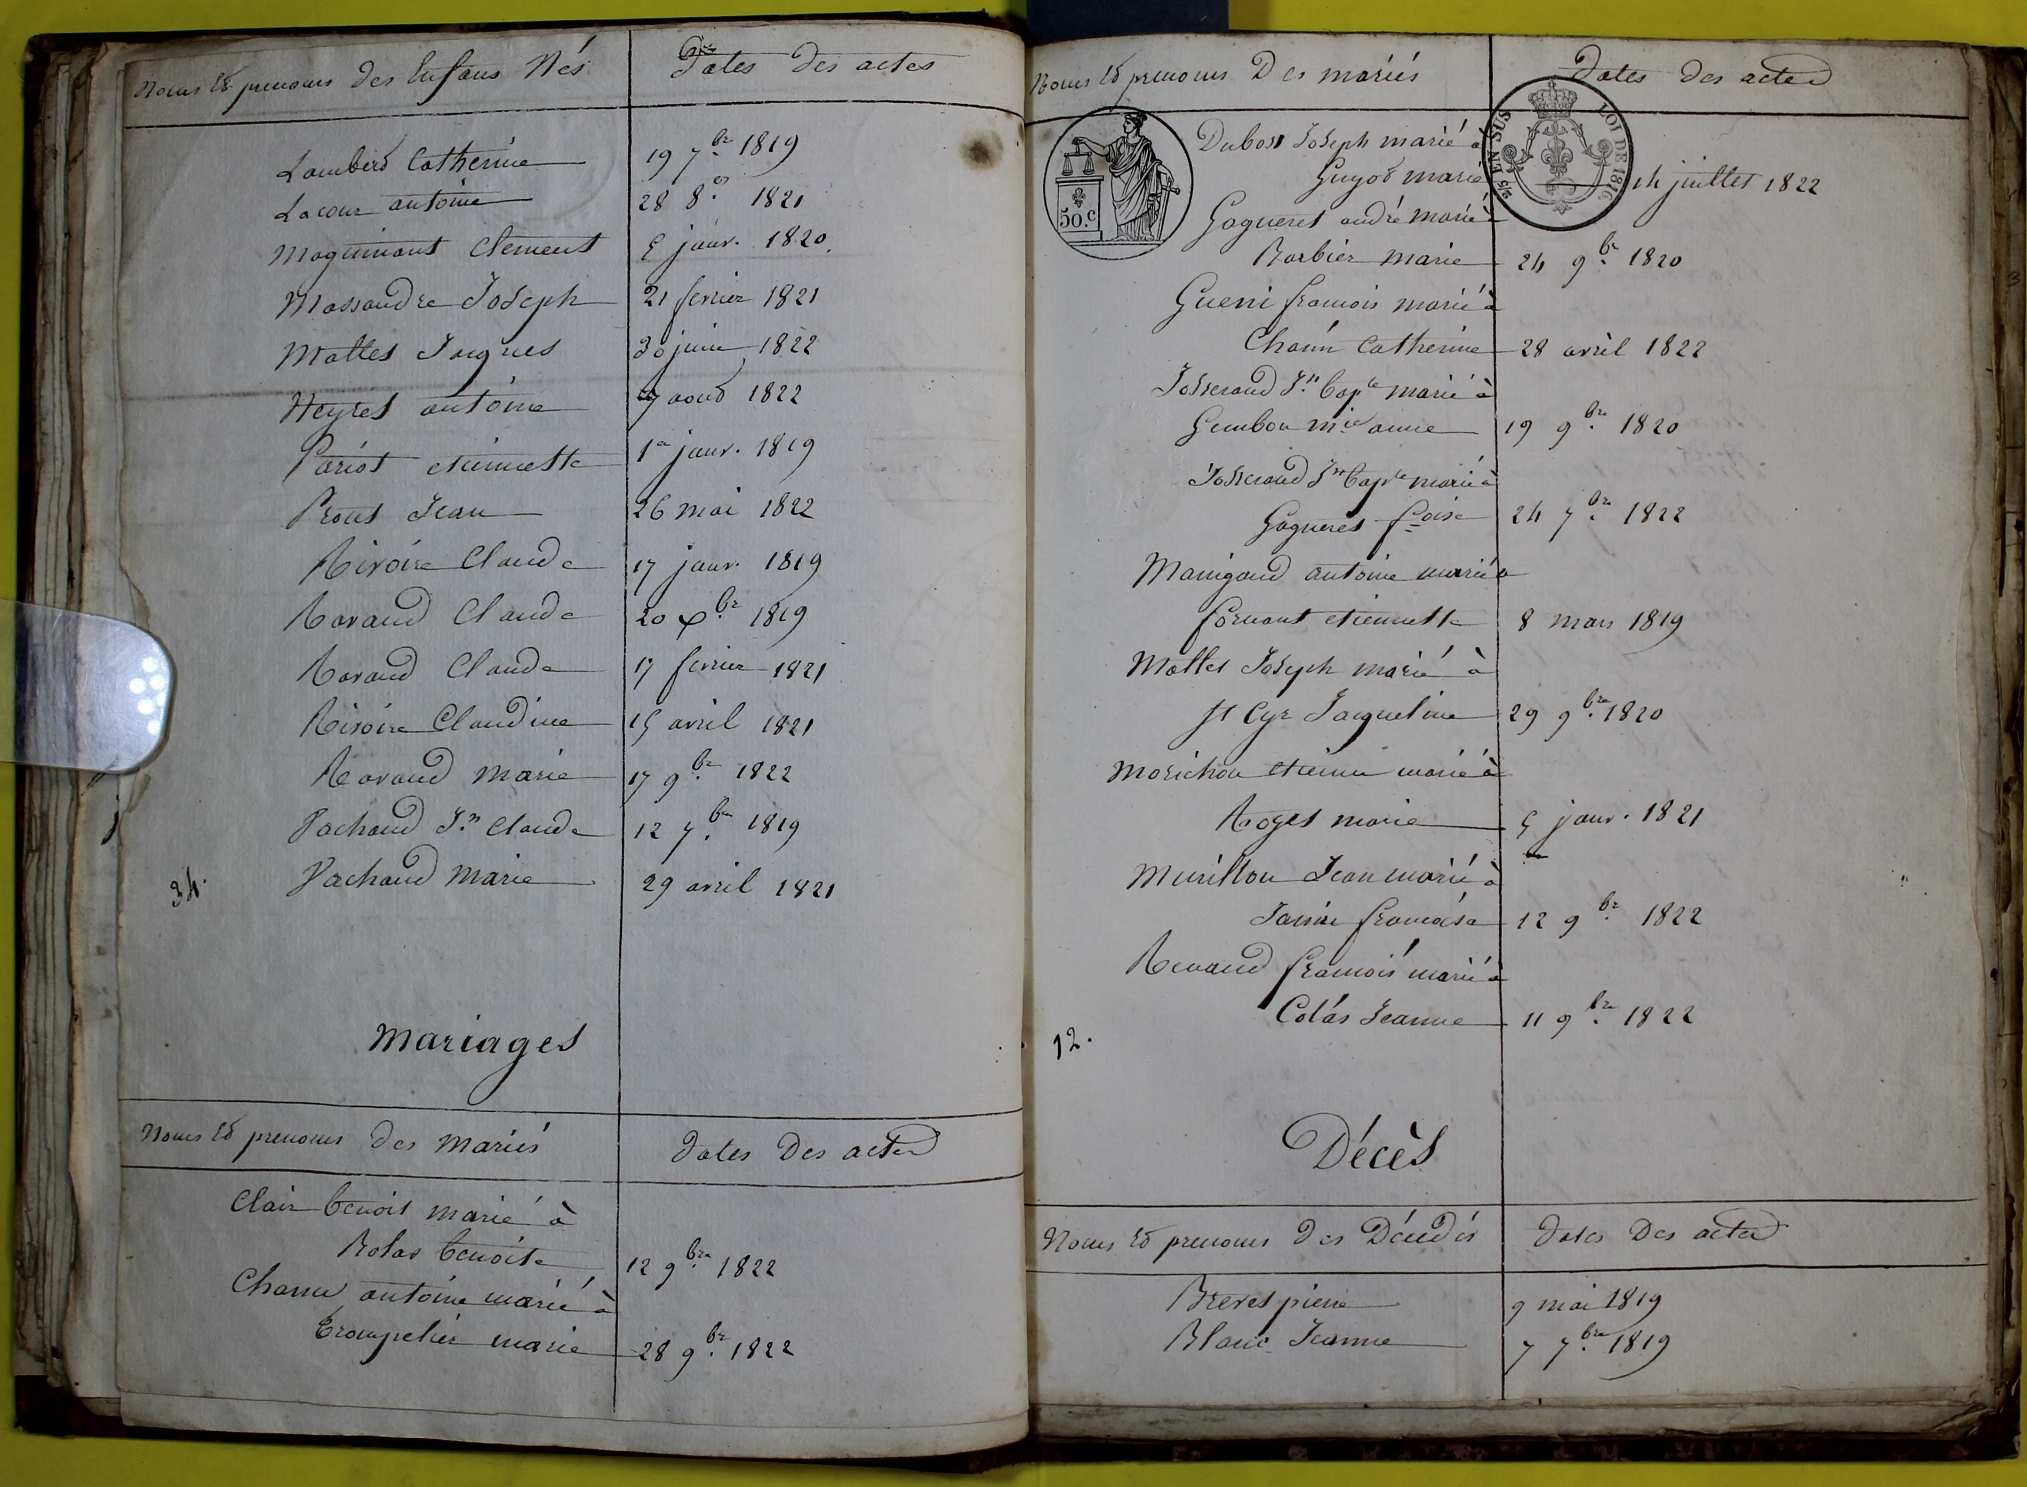 Noms et prenoms des Enfans Nés	Dates des actes
Lambert Catherine	19 7.bre 1819
Lacour antoine	28 8.re 1821
Maguinant Clement	5 janv. 1820
Massaudre Joseph	21 fevrier 1821
Mattet Jacques	30 juin 1822
Neyret antoine	7 aoud 1822
Pariot etiennette	1er janv. 1819
Prout Jean	26 mai 1822
Rivoire Claude	17 janv. 1819
Ravaud Claude	20 Xbre 1819
Ravaud Claude	17 fevrier 1821
Rivoire Claudine	15 avril 1821
Ravaud marie	17 9.bre 1822
Vachaud J.n Claude	12 7.bre 1819
Vachaud Marie	29 avril 1821
34.
Mariages
Noms et prenoms des Mariés	dates des actes
Clair benoit marié à
Rolar benoite	12 9.bre 1822
Chanu antoine marié à
trompelier marie	28 9.bre 1822
Noms et prenoms Des mariés	dates des actes
50.C
5/6 EN SUS LOI DE 1816
Dubost Joseph marié à
Guyot marie	14 juillet 1822
Gagneret andré marié à
Barbier Marie	24 9.bre 1820
Guerri francois marié à
Chanu Catherine	28 avril 1822
Josserand J.n Bapte marié à
Gembon Mie anne	19 9.bre 1820
Josserand J.n Bapte marié à
Gagneret fcoise	24 7.bre 1822
Manigand antoine marié à
fornant etiennette	8 mars 1819
Mattet Joseph marié à
St Cyr Jacqueline	29 9.bre 1820
Morichon etienne marié à
Roget marie	5 janv. 1821
Murillon Jean marié à
Janin francoise	12 9.bre 1822
Renaud francois marié à
Colas Jeanne	11 9.bre 1822
12.
Décès
Noms et prenoms des Décédés	dates Des actes
Brevet pierre	9 mai 1819
Blanc Jeanne	7 7.bre 1819